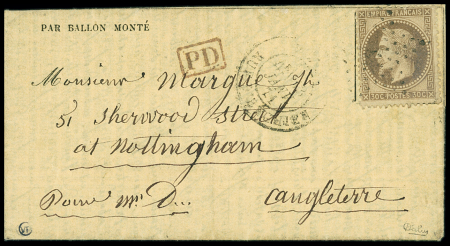 PAR BALLON MONTÉ
PD
EMPIRE FRANÇAIS
30C POSTES 30C
Monsieur Margue
51 Sherwood street
at Nottingham
Pour Mr D...
Angleterre